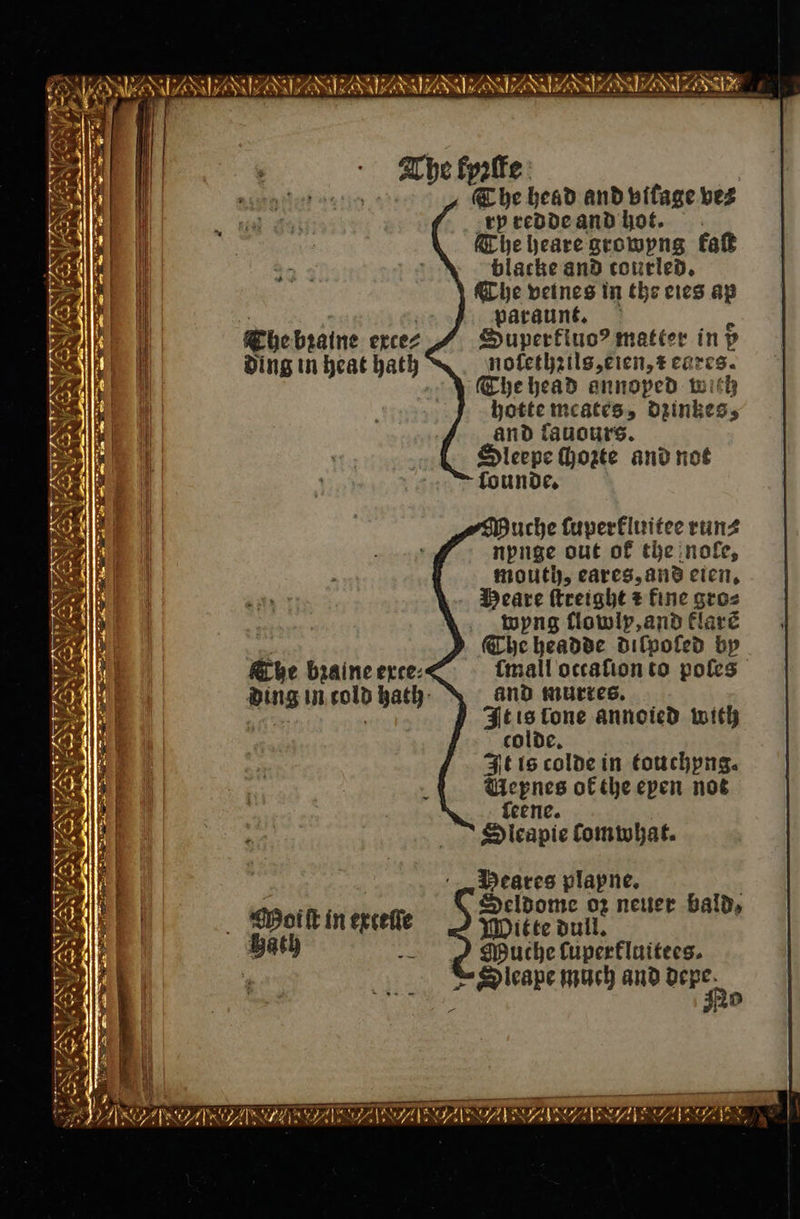 The fyrſte
The head and viſage ve⸗
ry redde and hot.
The heare growyng faſt
blacke and courled.
The veines in the eies ap
paraunt.
The braine excee⸗
ding in heat hath
Superfluoꝰ matter in yͤ
noſethrils, eien, ⁊ eares.
The head annoyed with
hotte meates, drinkes,
and ſauours.
Sleepe ſhorte and not
ſounde.
Muche ſuperfluitee run⸗
nynge out of the noſe,
mouth, eares, and eien.
Heare ſtreight ⁊ fine gro⸗
wyng ſlowly, and flarē
The headde diſpoſed by
The braine excee⸗
ding in cold hath
ſmall occaſion to poſes
and murres.
It is ſone annoied with
colde.
It is colde in touchyng.
Veynes of the eyen not
ſeene.
Sleapie ſomwhat.
Moiſt in exceſſe
hath
Heares playne.
Seldome or neuer bald,
Witte dull.
Muche ſuperfluitees.
Sleape much and depe.
No